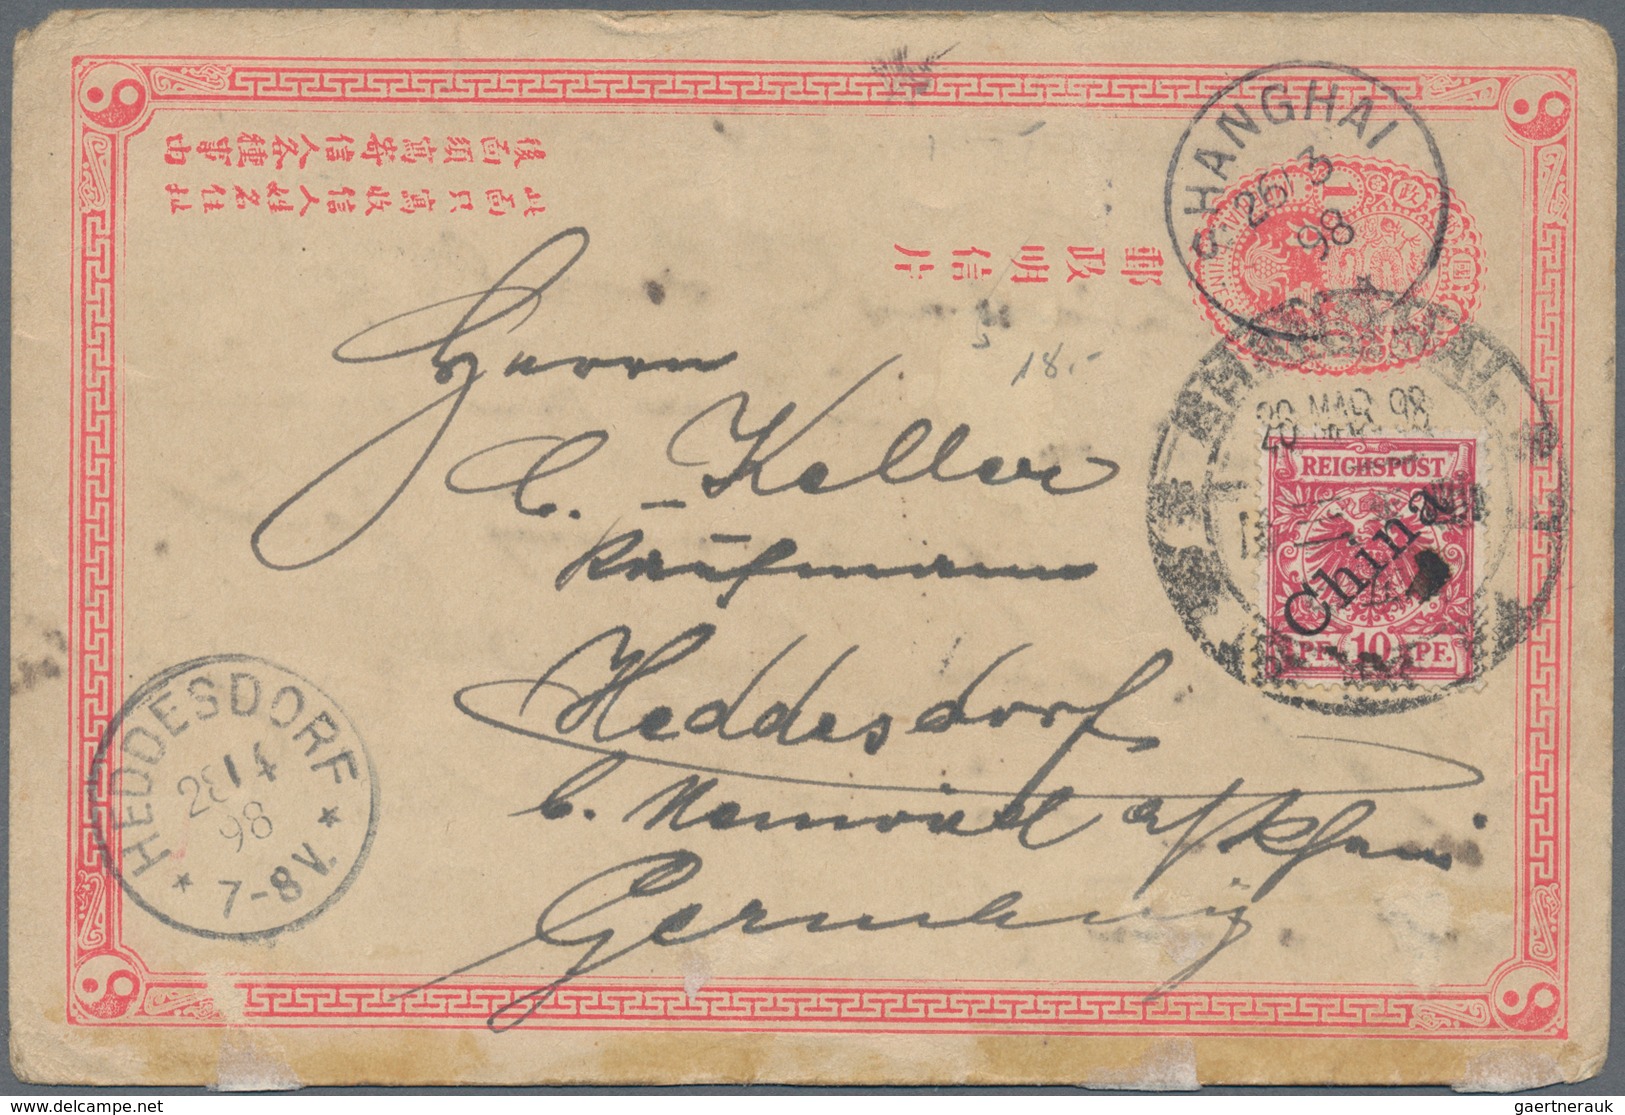 後面須寫寄信人各種事由
此面只寫收信人姓名住址
郵政明信片
SHANGHAI
26/3
98
1
MAR 98
REICHSPOST
China
PF. 10 PF.
18.-
Herrn
C. Keller
Kaufmann
Heddesdorf
b. Neuwied a/Rhein
Germany
HEDDESDORF
4
98
7-8V.
delcampe.net
gaertnerauk